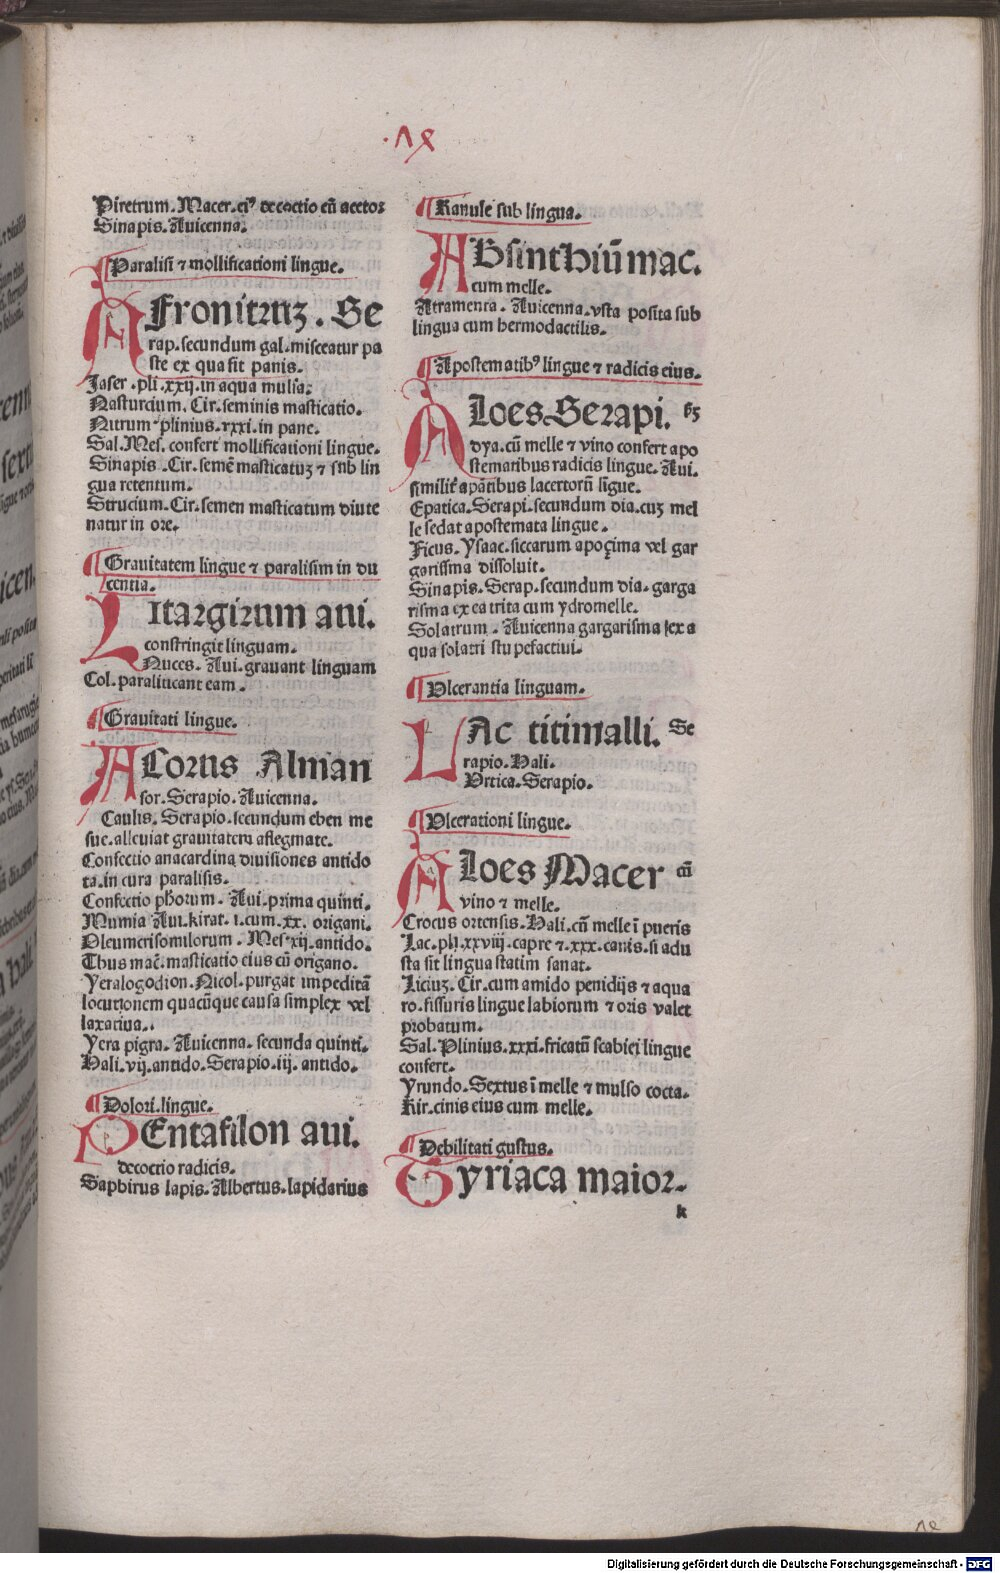 .18
Piretrum. Macer. eiꝰ decoctio cū aceto.
Sinapis. Auicenna.
¶ Paralisi ⁊ mollificationi lingue.
AFronitruꝫ. Se
rap. secundum gal. misceatur pa
ste ex qua fit panis.
Jaser. pli. xxij. in aqua mulsa.
Nasturcium. Cir. seminis masticatio.
Nitrum plinius. xxxi. in pane.
Sal. Mes. confert mollificationi lingue.
Sinapis. Cir. semē masticatuꝫ ⁊ sub lin
gua retentum.
Strucium. Cir. semen masticatum diute
natur in ore.
¶ Grauitatem lingue ⁊ paralisim in du
centia.
LItargirum aui.
constringit linguam.
Nuces. Aui. grauant linguam
Col. paraliticant eam.
¶ Grauitati lingue.
ACorus Alman
sor. Serapio. Auicenna.
Caulis. Serapio. secundum eben me
sue. alleuiat grauitatem aflegmate.
Confectio anacardina diuisiones antido
ta. in cura paralisis.
Confectio phorum. Aui. prima quinti.
Mumia Aui. kirat. i. cum. xx. origani.
Oleum crisomilorum. Mes. xij. antido.
Thus mac̄. masticatio eius cū origano.
Yeralogodion. Nicol. purgat impeditā
locutionem quacūque causa simplex vel
laxatiua.
Yera pigra. Auicenna. secunda quinti.
Hali. vij. antido. Serapio. iij. antido.
¶ Dolori. lingue.
PEntafilon aui.
decoctio radicis.
Saphirus lapis. Albertus. lapidarius
¶ Ranule sub lingua.
ABsinthiū mac.
cum melle.
Atramenta. Auicenna. vsta posita sub
lingua cum hermodactilis.
¶ Apostematibꝰ lingue ⁊ radicis eius.
ALoes. Serapi. ẜꝫ
dya. cū melle ⁊ vino confert apo
stematibus radicis lingue. Aui.
similit̄ apātibus lacertorū līgue.
Epatica. Serapi. secundum dia. cuꝫ mel
le sedat apostemata lingue.
Ficus. Ysaac. siccarum apoçima vel gar
garisma dissoluit.
Sinapis. Serap. secundum dia. garga
risma ex ea trita cum ydromelle.
Solatrum. Auicenna gargarisma ex a
qua solatri stupefactiui.
¶ Vlcerantia linguam.
LAc titimalli. Se
rapio. Hali.
Vrtica. Serapio.
¶ Vlcerationi lingue.
ALoes Macer cū
vino ⁊ melle.
Crocus ortensis. Hali. cū melle ī pueris
Lac. pli. xxviij. capre ⁊. xxx. canis. si adu
sta sit lingua statim sanat.
Liciuꝫ. Cir. cum amido penidijs ⁊ aqua
ro. fissuris lingue labiorum ⁊ oris valet
probatum.
Sal. Plinius. xxxi. fricatū scabiei lingue
confert.
Yrundo. Sextus ī melle ⁊ mulso cocta.
Kir. cinis eius cum melle.
¶ Debilitati gustus.
Tyriaca maior.
k
18
Digitalisierung gefördert durch die Deutsche Forschungsgemeinschaft - DFG